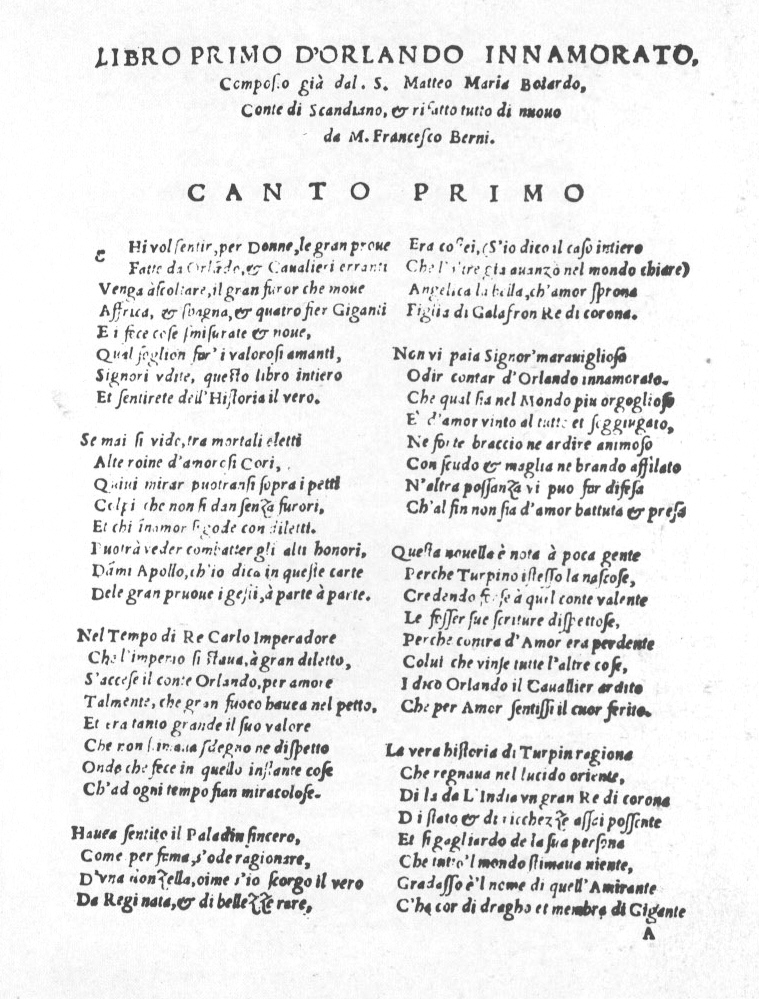 LIBRO PRIMO D'ORLANDO INNAMORATO,
Composto già dal. S. Matteo Maria Boiardo,
Conte di Scandiano, & rifatto tutto di nuouo
da M. Francesco Berni.
CANTO PRIMO
CHi vol sentir, per Donne, le gran proue
Fatte da Orlãdo, & Caualieri erranti
Venga àscoltare, il gran furor che moue
Affrica, & spagna, & quatro fier Giganti
E i fece cose smisurate & noue,
Qual soglion far' i valorosi amanti,
Signori vdite, questo libro intiero
Et sentirete dell'Historia il vero.
Se mai si vide, tra mortali eletti
Alte roine d'amorosi Cori,
Quiui mirar puotransi sopra i petti
Colpi che non si dan senza furori,
Et chi inamor si gode con diletti.
Puotrà veder combatter gli alti honori,
Dãmi Apollo, ch'io dica in queste carte
Dele gran pruoue i gesti, à parte à parte.
Nel Tempo di Re Carlo Imperadore
Che l'imperio si staua, à gran diletto,
S'accese il conte Orlando, per amore
Talmente, che gran fuoco hauea nel petto,
Et era tanto grande il suo valore
Che non stimaua sdegno ne dispetto
Onde che fece in quello instante cose
Ch'ad ogni tempo fian miracolose.
Hauea sentito il Paladin sincero,
Come per fama, s'ode ragionare,
D'vna donzella, oime s'io scorgo il vero
Da Regi nata, & di bellezze rare,
Era costei, (S'io dico il caso intiero
Che l'altre gia auanzò nel mondo chiare)
Angelica la bella, ch'amor sprona
Figlia di Galafron Re di corona.
Non vi paia Signor' marauiglioso
Odir contar d'Orlando innamorato.
Che qual sia nel Mondo piu orgoglioso
E' d'amor vinto al tutto et soggiugato,
Ne forte braccio ne ardire animoso
Con scudo & maglia ne brando affilato
N'altra possanza vi puo far difesa
Ch'al fin non sia d'amor battuta & presa
Questa nouella è nota à poca gente
Perche Turpino istesso la nascose,
Credendo forse à quel conte valente
Le fosser sue scriture dispettose,
Perche contra d'Amor era perdente
Colui che vinse tutte l'altre cose,
I dico Orlando il Cauallier ardito
Che per Amor sentissi il cuor ferito.
La vera historia di Turpin ragiona
Che regnaua nel lucido oriente,
Di la da L'India vn gran Re di corona
Di stato & di ricchezze assai possente
Et si gagliardo de la sua persona
Che tutto'l mondo stimaua niente,
Gradasso è'l nome di quell'Amirante
C'ha cor di dragho et membra di Gigante
A